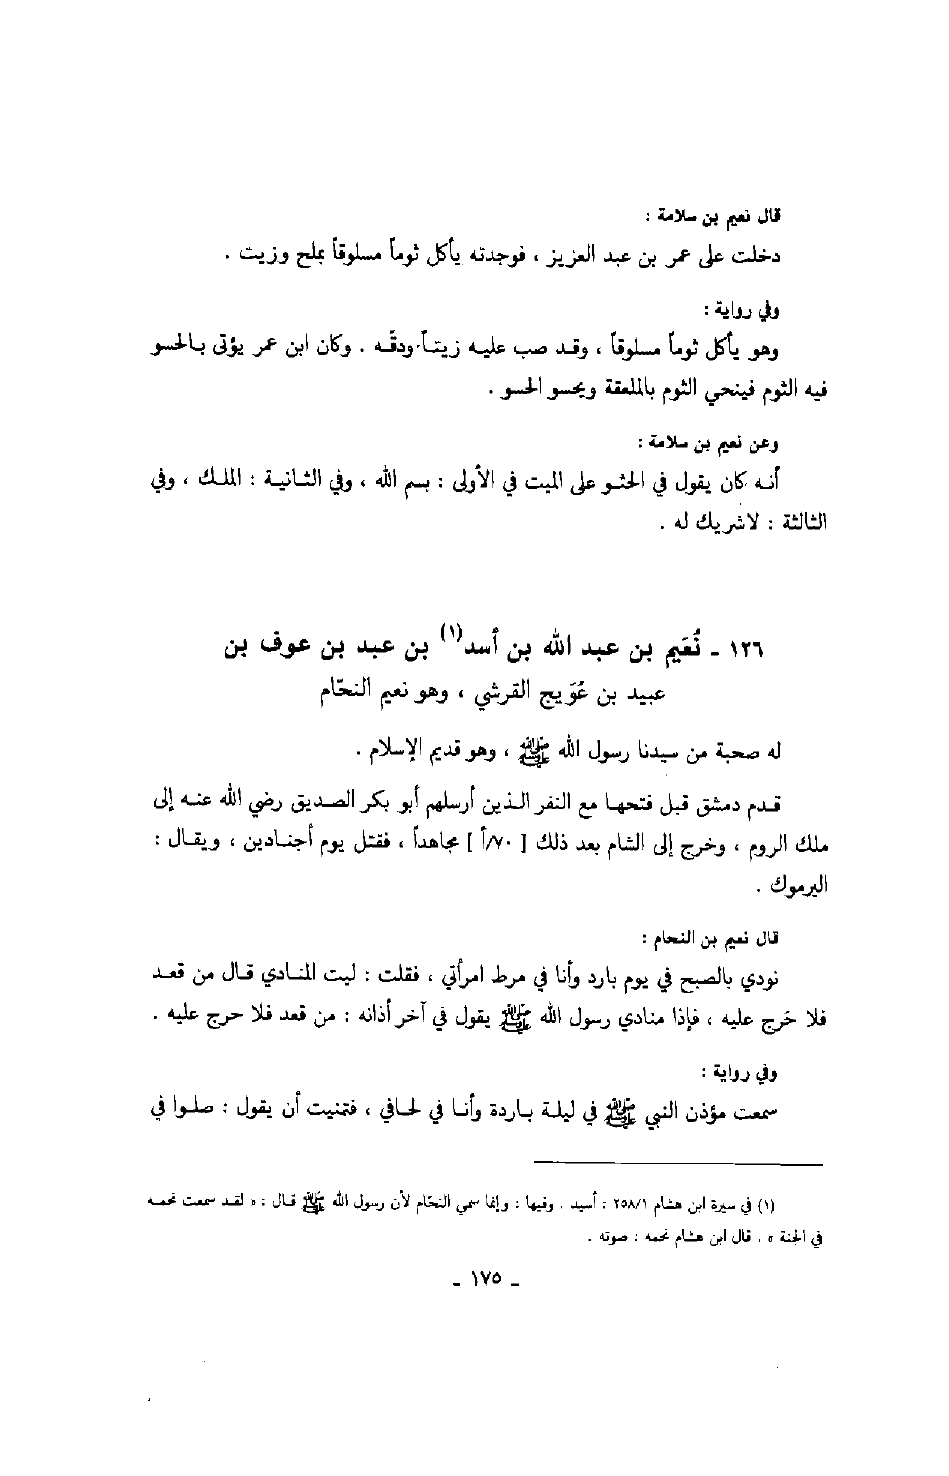 قال نعيم بن سلامة :
دخلت على عمر بن عبد العزيز ، فوجدته يأكل ثوماً مسلوقاً بملح وزيت .
وفي رواية :
وهو يأكل ثوماً مسلوقاً ، وقد صب عليه زيتاً ودقّه . وكان ابن عمر يؤتى بالحسو
فيه الثوم فينحي الثوم بالملعقة ويحسو الحسو .
وعن نعيم بن سلامة :
أنه كان يقول في الحثو على الميت في الأولى : بسم الله ، وفي الثانية : الملك ، وفي
الثالثة : لاشريك له .
١٢٦ ـ نُعَيم بن عبد الله بن أسد(١) بن عبد بن عوف بن
عبيد بن عُوَيج القرشي ، وهو نعيم النحّام
له صحبة من سيدنا رسول الله ﷺ ، وهو قديم الإسلام .
قدم دمشق قبل فتحها مع النفر الذين أرسلهم أبو بكر الصديق رضي الله عنه إلى
ملك الروم ، وخرج إلى الشام بعد ذلك [ ٧٠/أ ] مجاهداً ، فقتل يوم أجنادين ، ويقال :
اليرموك .
قال نعيم بن النحام :
نودي بالصبح في يوم بارد وأنا في مرط امرأتي ، فقلت : ليت المنادي قال من قعد
فلا حَرج عليه ، فإذا منادي رسول الله ﷺ يقول في آخر أذانه : من قعد فلا حرج عليه .
وفي رواية :
سمعت مؤذن النبي ﷺ في ليلة باردة وأنا في لحافي ، فتمنيت أن يقول : صلوا في
(١) في سيرة ابن هشام ٢٥٨/١ : أسيد . وفيها : وإنما سمي النحّام لأن رسول الله ﷺ قال : « لقد سمعت نحمه
في الجنة » . قال ابن هشام نحمه : صوته .
ـ ١٧٥ ـ